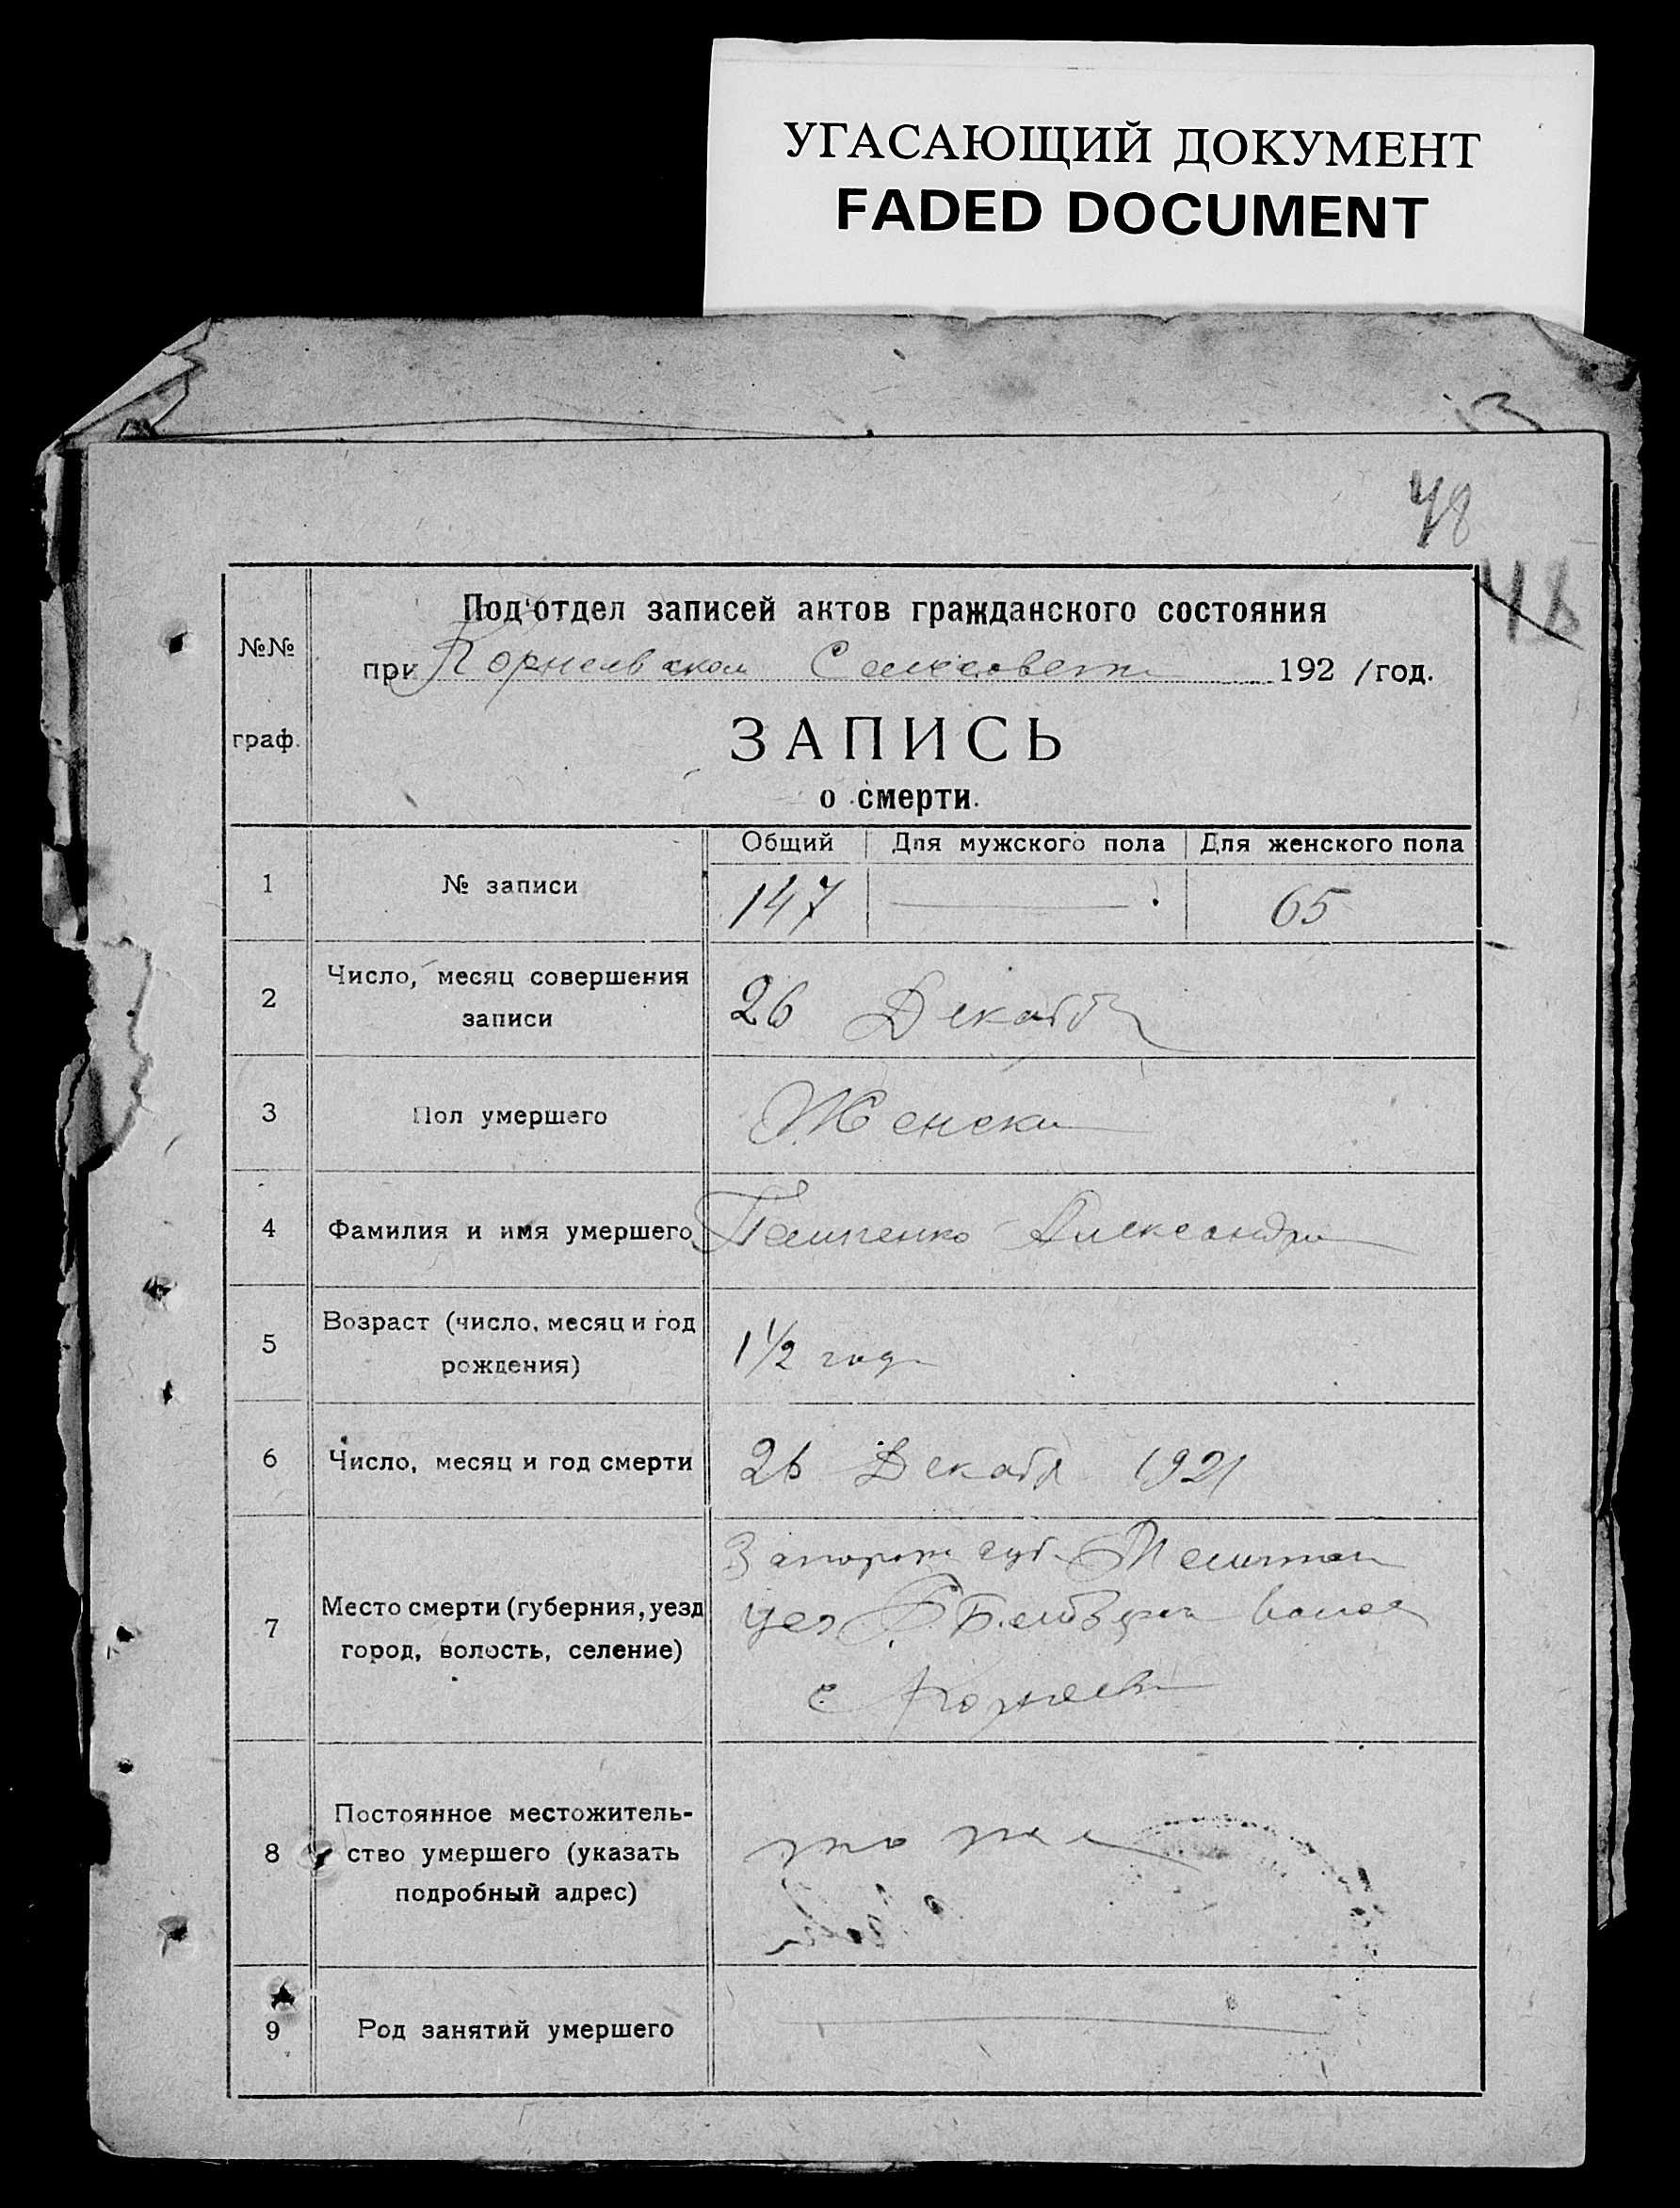 УГАСАЮЩИЙ ДОКУМЕНТ
FADED DOCUMENT
48
48
Под'отдел записей актов гражданского состояния
№№
при Корнеевском Сельсовете 192 1 год.
граф.
ЗАПИСЬ
о смерти.
Общий Для мужского пола Для женского пола
1 № записи 147 — 65
2 Число, месяц совершения
записи
26 Декабр
3 Пол умершего Женски
4 Фамилия и имя умершего Александра
5 Возраст (число, месяц и год
рождения)
1 1/2 год
6 Число, месяц и год смерти 26 Декабр 1921
7 Место смерти (губерния, уезд
город, волость, селение)
Запорож губ. Мелитоп
уез Б. Белозерск волос
с Корнеевка
8 Постоянное местожитель-
ство умершего (указать
подробный адрес)
то же
9 Род занятий умершего —